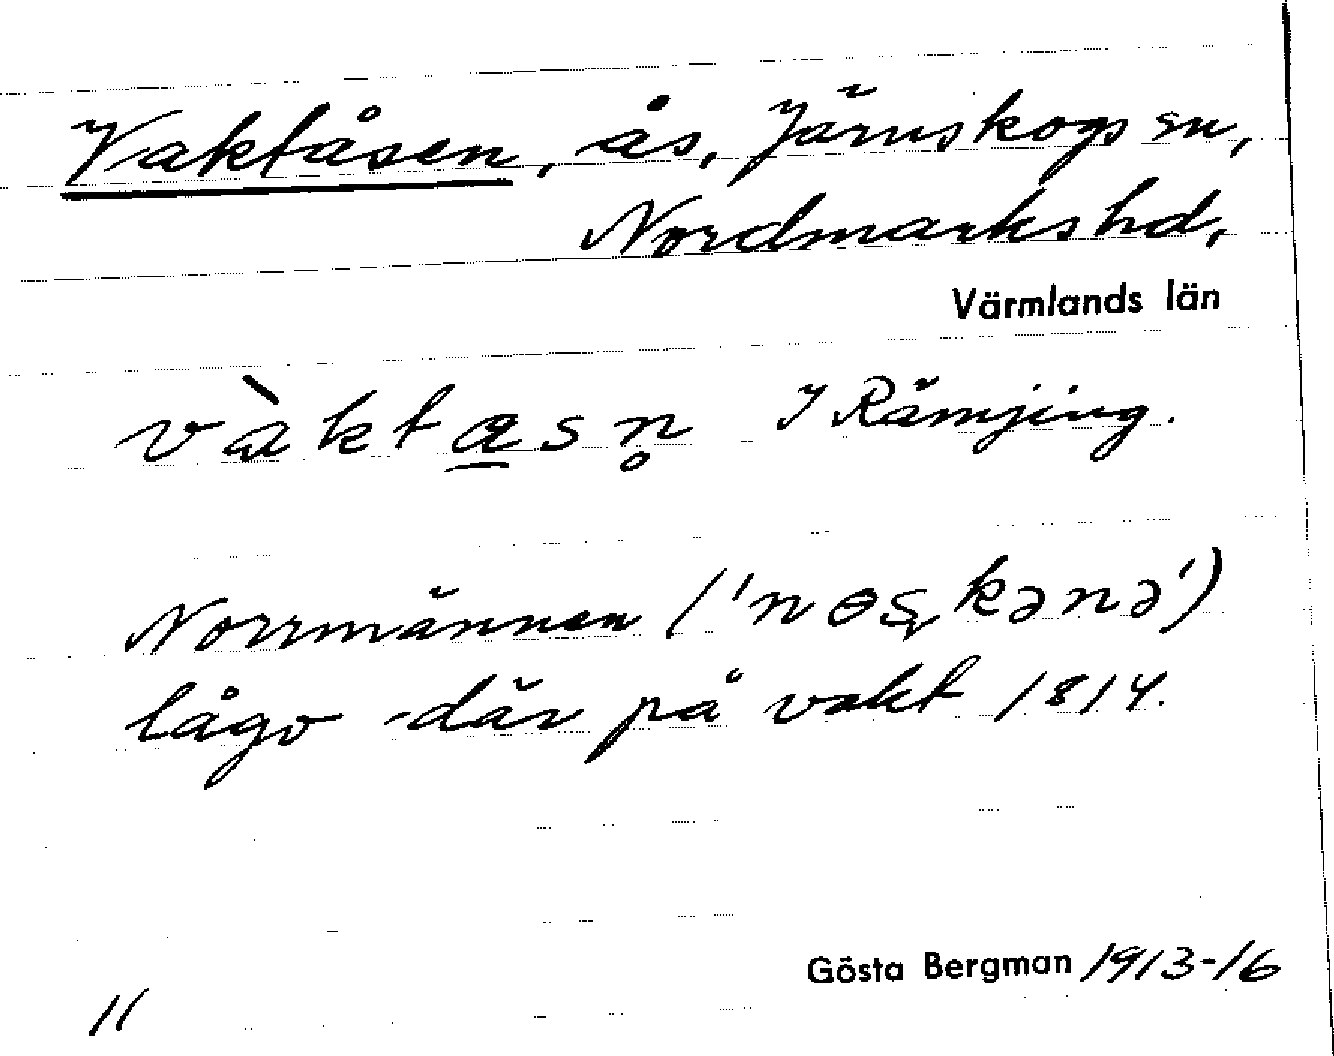 Vaktåsen, ås, Järnskogs sn,
Nordmarks hd,
Värmlands län
vàktas̥n̥ I Rämjäng.
Norrmännen ('nɵʂkənə')
lågo där på vakt 1814.
Gösta Bergman 1913-16
11